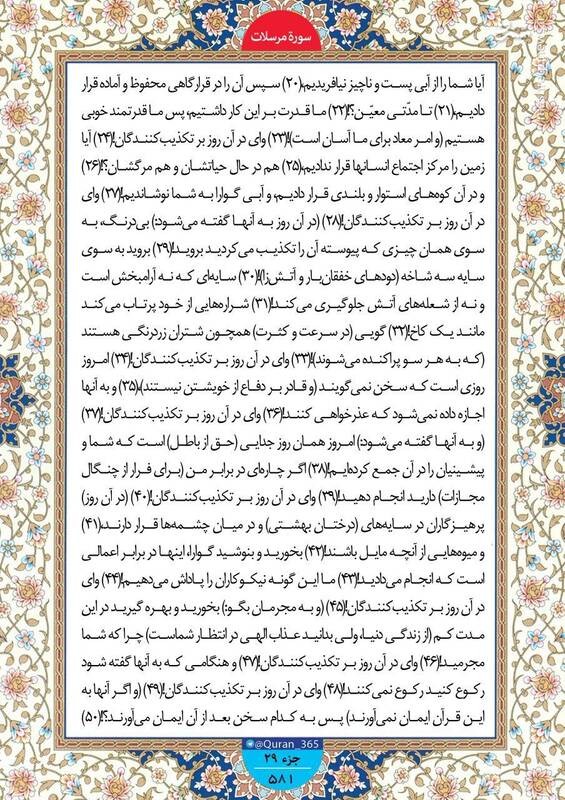 سورهٔ مرسلات
آیا شما را از آبی پست و ناچیز نیافریدیم،(۲۰) سپس آن را در قرارگاهی محفوظ و آماده قرار
دادیم،(۲۱) تا مدّتی معیّن؟!(۲۲) ما قدرت بر این کار داشتیم، پس ما قدرتمند خوبی
هستیم (و امر معاد برای ما آسان است)!(۲۳) وای در آن روز بر تکذیب‌کنندگان!(۲۴) آیا
زمین را مرکز اجتماع انسانها قرار ندادیم،(۲۵) هم در حال حیاتشان و هم مرگشان؟!(۲۶)
و در آن کوه‌های استوار و بلندی قرار دادیم، و آبی گوارا به شما نوشاندیم!(۲۷) وای
در آن روز بر تکذیب‌کنندگان!(۲۸) (در آن روز به آنها گفته می‌شود:) بی‌درنگ، به
سوی همان چیزی که پیوسته آن را تکذیب می‌کردید بروید!(۲۹) بروید به سوی
سایه سه شاخه (دودهای خفقان‌بار و آتش‌زا)!(۳۰) سایه‌ای که نه آرامبخش است
و نه از شعله‌های آتش جلوگیری می‌کند!(۳۱) شراره‌هایی از خود پرتاب می‌کند
مانند یک کاخ!(۳۲) گویی (در سرعت و کثرت) همچون شتران زردرنگی هستند
(که به هر سو پراکنده می‌شوند)!(۳۳) وای در آن روز بر تکذیب‌کنندگان!(۳۴) امروز
روزی است که سخن نمی‌گویند (و قادر بر دفاع از خویشتن نیستند)،(۳۵) و به آنها
اجازه داده نمی‌شود که عذرخواهی کنند!(۳۶) وای در آن روز بر تکذیب‌کنندگان!(۳۷)
(و به آنها گفته می‌شود:) امروز همان روز جدایی (حق از باطل) است که شما و
پیشینیان را در آن جمع کرده‌ایم!(۳۸) اگر چاره‌ای در برابر من (برای فرار از چنگال
مجازات) دارید انجام دهید!(۳۹) وای در آن روز بر تکذیب‌کنندگان!(۴۰) (در آن روز)
پرهیزگاران در سایه‌های (درختان بهشتی) و در میان چشمه‌ها قرار دارند،(۴۱)
و میوه‌هایی از آنچه مایل باشند!(۴۲) بخورید و بنوشید گوارا، اینها در برابر اعمالی
است که انجام می‌دادید!(۴۳) ما این گونه نیکوکاران را پاداش می‌دهیم!(۴۴) وای
در آن روز بر تکذیب‌کنندگان!(۴۵) (و به مجرمان بگو:) بخورید و بهره گیرید در این
مدت کم (از زندگی دنیا، ولی بدانید عذاب الهی در انتظار شماست) چرا که شما
مجرمید!(۴۶) وای در آن روز بر تکذیب‌کنندگان!(۴۷) و هنگامی که به آنها گفته شود
رکوع کنید رکوع نمی‌کنند!(۴۸) وای در آن روز بر تکذیب‌کنندگان!(۴۹) (و اگر آنها به
این قرآن ایمان نمی‌آورند) پس به کدام سخن بعد از آن ایمان می‌آورند؟!(۵۰)
@Quran_365
جزء ۲۹
۵۸۱